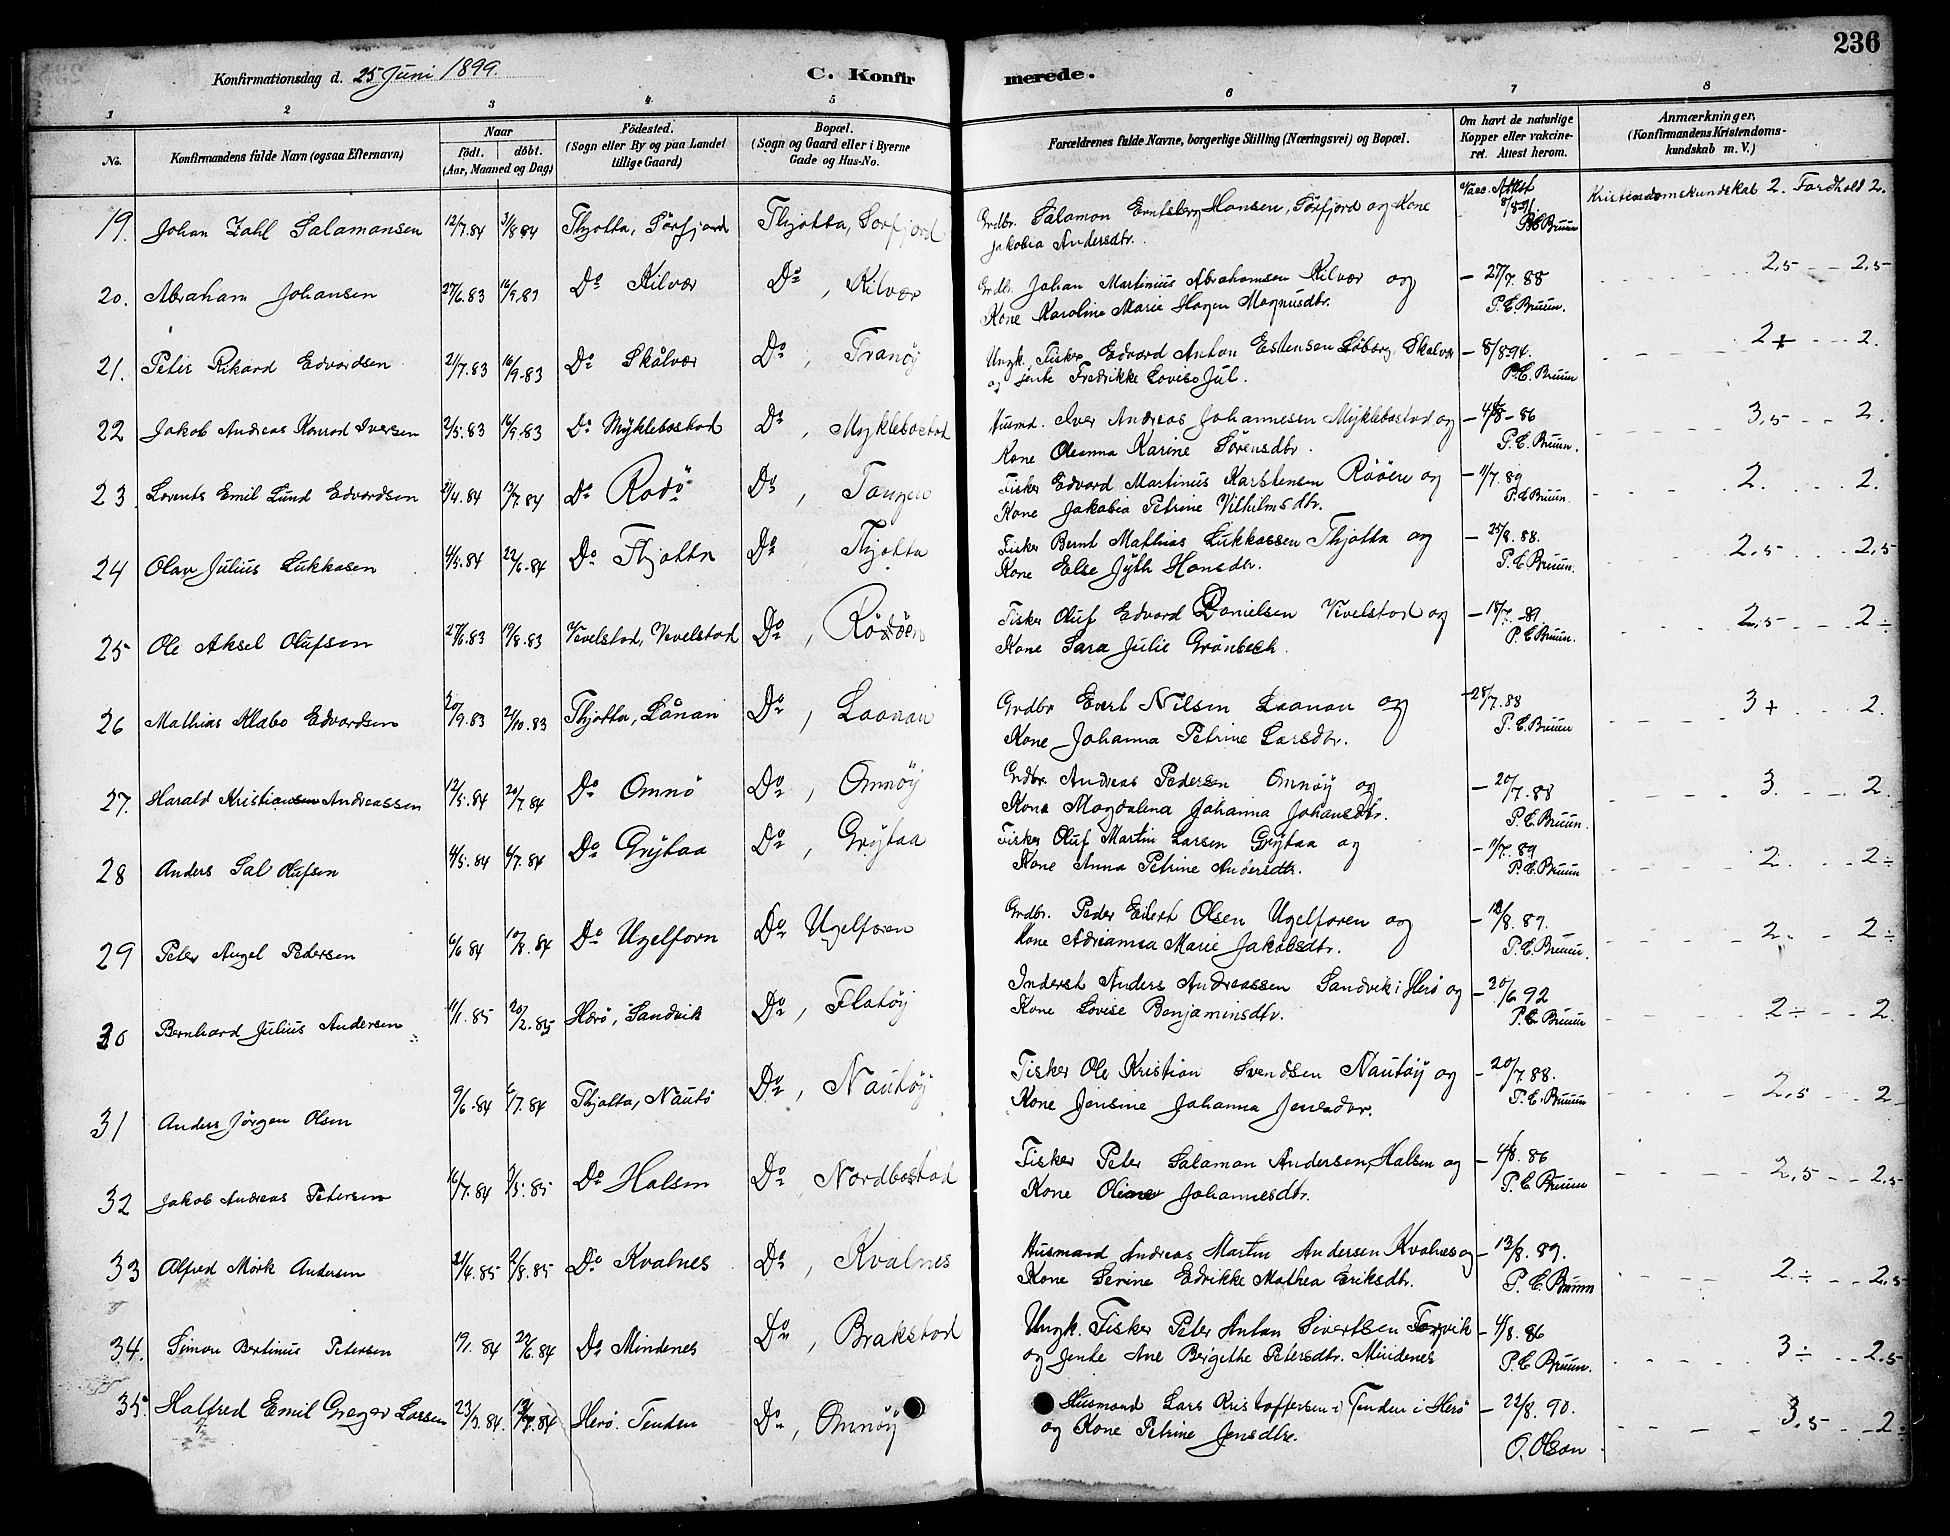 236
Konfirmationsdag d. 25 Juni 1899.
C. Konfirmerede.
1 2 3 4 5 6 7 8
No.
Konfirmandens fulde Navn (ogsaa Efternavn)
Naar
født. døbt.
(Aar, Maaned og Dag)
Födested.
(Sogn eller By og paa Landet
tillige Gaard)
Bopæl.
(Sogn og Gaard eller i Byerne
Gade og Hus-No.
Forældrenes fulde Navne, borgerlige Stilling (Næringsvei) og Bopæl.
Om havt de naturlige
Kopper eller vakcine-
ret. Attest herom.
Anmærkninger,
(Konfirmandens Kristendoms-
kundskab m. V.)
19. Johan Zahl Salamonsen 12/7.84 31/8 84 Thjotta, Sörfjord Thjotta, Sorfjord Grdbr. Salamon Erntsberg Hansen, Sörfjord og Kone Vacc. Attest 8/891. Kristendomskundskab 2. Fordhold 2.
Jakobia Andersdtr. P.C. Bruun
20. Abraham Johansen 27/6.83 16/9.83 Do Kilvær Do, Kilvær Grdbr. Johan Martinius Abrahamsen Kilvær og – 27/7. 88 2,5 2,5
Kone Karoline Marie Hagen Magnusdtr. P.C. Bruun.
21. Peter Rikard Edvardsen 21/7.83 16/9.83 Do Skålvær Do, Tranöy Ungk. Fisker Edvard Anton Estensen Söberg Skalvær – 8/894. 2+ 2.
og jente Fredrikke Lovise Jul. P.C. Bruun
22 Jakob Andreas Konrad Iversen 2/5.83 16/9.83 Do Myklebostad Do, Myklebostad Husmd. Iver Andreas Johannesen Myklebostad og – 4/8 – 86 3,5 2.
Kone Oleanna Karine Sörensdtr. P.C. Bruun.
23. Lorents Emil Lund Edvardsen 2/4.84 13/7.84 Do Rodö Do, Tangen Fisker Edvard Martinius Karstensen Rööen og – 11/7. 89 2. 2.
Kone Jakobia Petrine Vilhelmsdtr. P.C. Bruun.
24 Olav Julius Lukkasen 4/5.84 22/6.84 Do Thjotta Do Thjotta Fisker Bernt Mathias Lukkassen Thjotta og – 25/8. 88. 2,5 2,5
Kone Else Jÿth Hansdtr. P.C. Bruun.
25 Ole Aksel Olufsen 27/6.83 19/8.83 Vevelstad, Vevelstad Do, Rödöen Fisker Oluf Edvard Danielsen Vevelstad og – 18/7. 89 2,5 2÷
Kone Sara Julie Grönbech. P.C. Bruun.
26 Mathias Klabo Edvardsen 20/9.83 21/10.83 Thjotta, Lånan Do, Laanan Grdbr Evert Nilsen Laanan og – 28/7.88 3+ 2.
Kone Johanna Petrine Larsdtr. P.C. Bruun
27. Harald Kristiansen Andreassen 12/5.84 20/7.84 Do Omnö Do, Omnöy Grdbr. Andreas Pedersen Omnöy og – 20/7.88 3. 2.
Kone Magdalena Johanna Johansdtr. P.C. Bruun.
28 Anders Sal Olufsen 4/5.84 6/7.84 Do Grÿtaa Do, Grytaa Fisker Oluf Martin Larsen Grÿtaa og – 11/7. 89 2 2÷
Kone Anna Petrine Andersdtr. P.C. Bruun
29 Peter Angel Pedersen 6/6 84 10/8. 84 Do Ugelforn Do Ugelforen Grdbr. Peder Eilert Olsen Ugelforen og – 18/8. 89. 2. 2÷
Kone Adrianna Marie Jakobsdtr. P.C. Bruun.
30 Bernhard Julius Andersen 11/1.85 20/2.85 Herö, Sandvik Do, Flatöy Inderst Anders Andreassen Sandvik i Herö og – 20/6 92 2÷ 2.
Kone Lovise Benjaminsdtr. P.C. Bruun
31 Anders Jörgen Olsen 9/6.84 6/7.84 Thjotta, Nautö Do, Nautöy Fisker Ole Kristian Svendsen Nautöy og – 20/7 88. 2,5 2
Kone Jensine Johanna Jensdtr. P.C. Bruun
32 Jakob Andreas Petersen 16/7.84 3/5.85 Do Halsen Do, Nordbostad Fisker Peter Salamon Andersen, Halsen og – 4/8. 86 2,5 2,5
Kone Oline Johannesdtr. P.C. Bruun
33 Alfred Mörk Andersen 21/4.85 2/8.85 Do Kvalnes Do, Kvalnes Husmand Andreas Martin Andersen Kvalnes og – 13/8. 89. 2÷ 2,5
Kone Serine Edrikke Mathea Eriksdtr. P.C. Bruun
34. Simon Bertinus Petersen 19/1. 84 22/6.84 Do Mindenes Do, Brakstad Ungk. Fisker Peter Antan Sivertsen Forvik – 4/8. 86 3÷ 2,5
og Jente Ane Bergithe Petersdtr. Mindenes P.C. Bruun.
35. Halfred Emil Greger Larsen 23/3.84. 13/7.84 Herö. Tenden Do, Omnöy Husmand Lars Kristoffersen i Tenden i Herö – 22/8. 90. 3,5 2÷
og Kone Petrine Jensdtr. O. Olsen